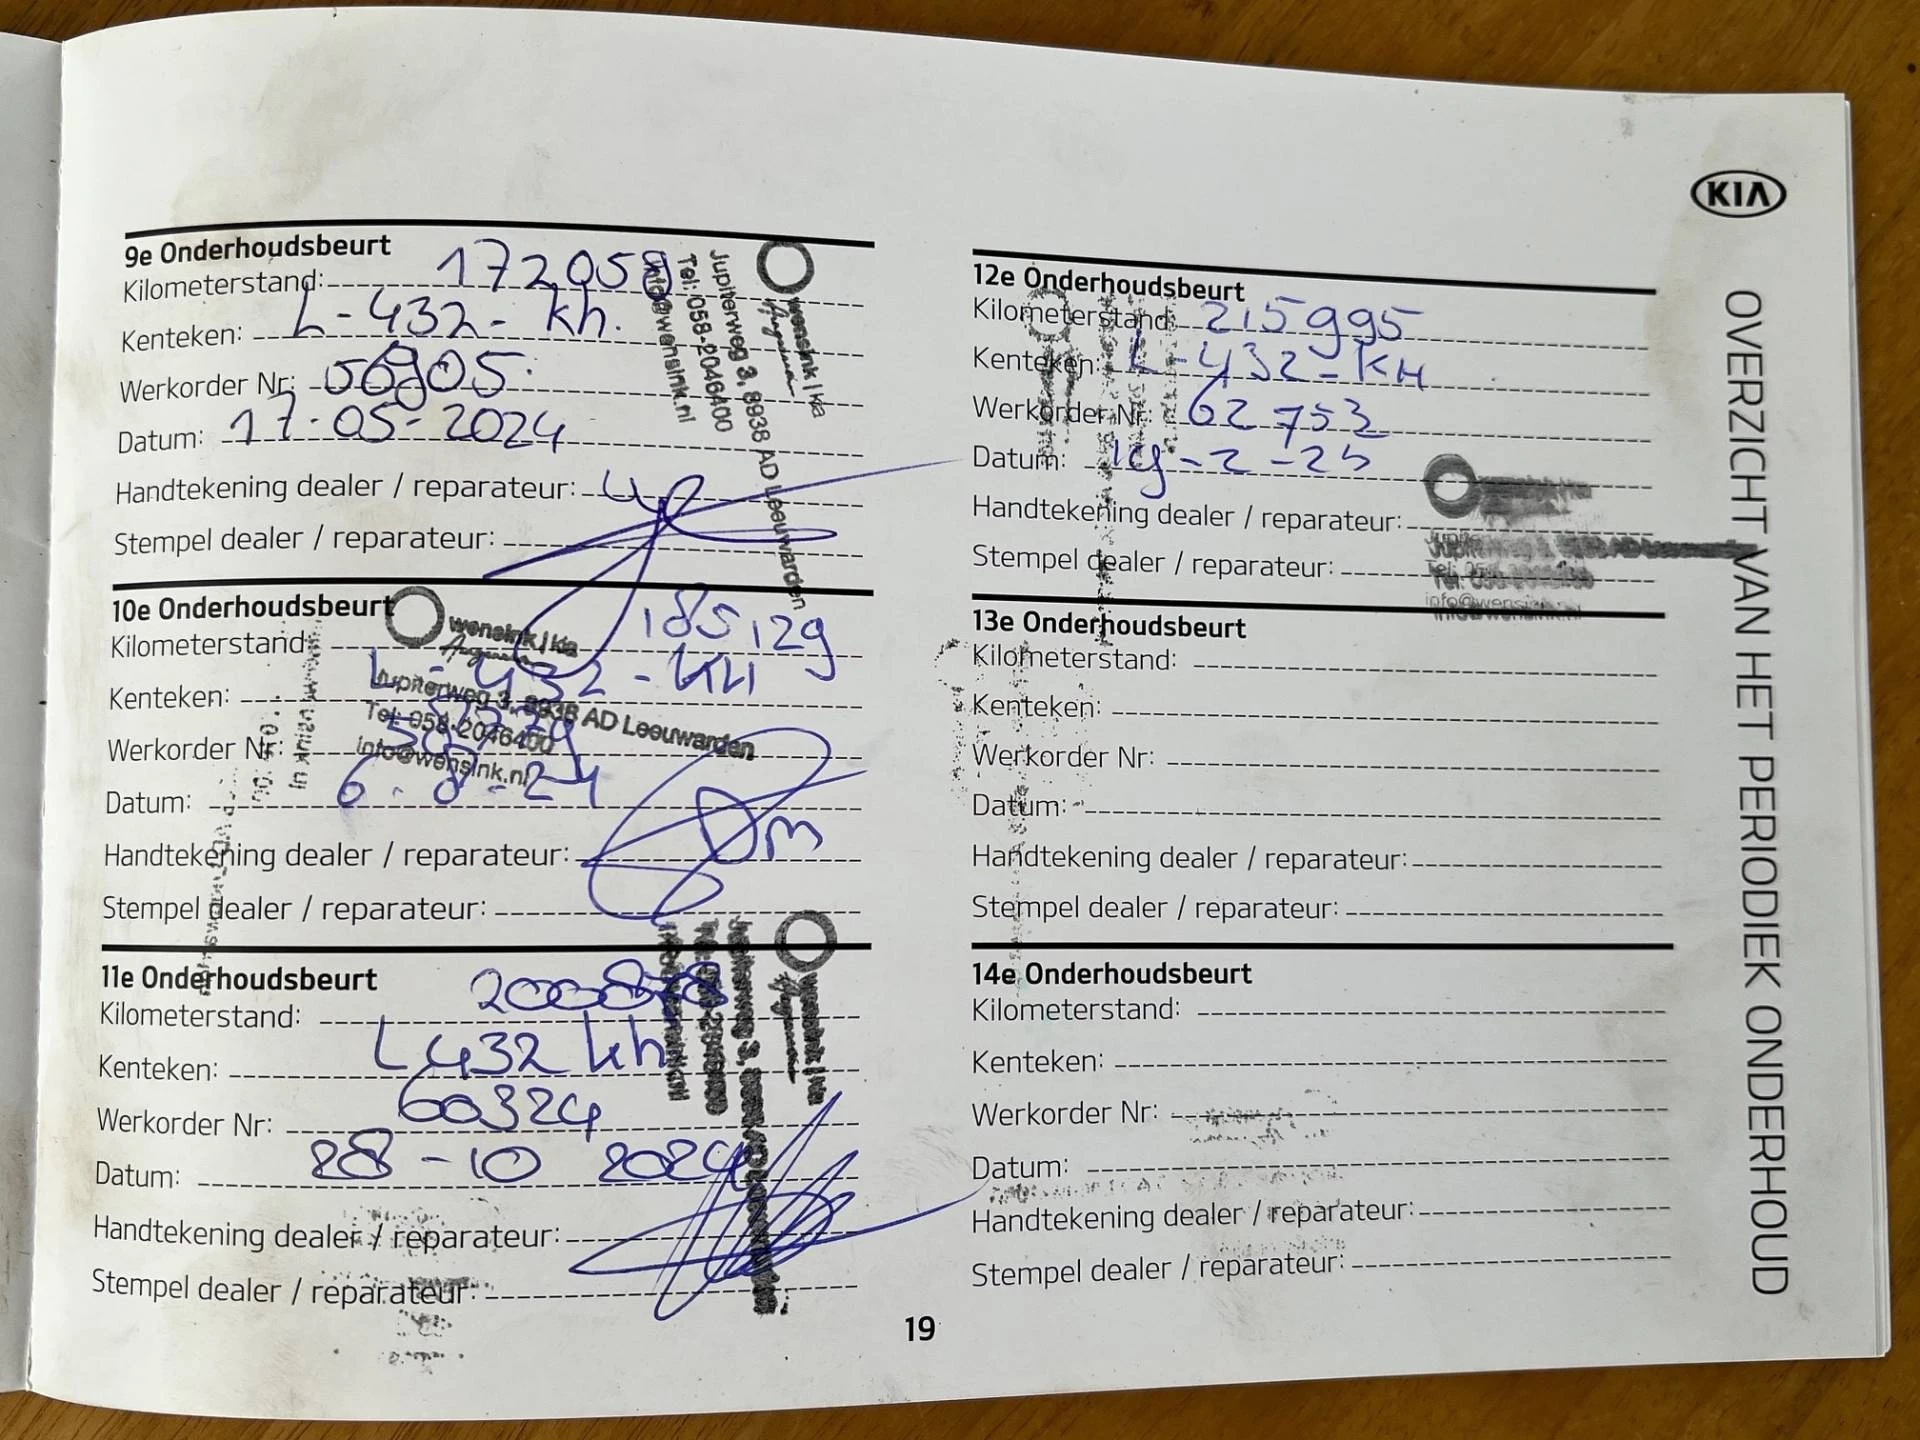 KIA
OVERZICHT VAN HET PERIODIEK ONDERHOUD
9e Onderhoudsbeurt
Kilometerstand: 172059
Kenteken: L-432-kh.
Werkorder Nr: 56905
Datum: 17-05-2024
Handtekening dealer / reparateur:
Stempel dealer / reparateur:
wensink | kia
Jupiterweg 3, 8938 AD Leeuwarden
Tel: 058-2046400
info@wensink.nl
10e Onderhoudsbeurt
Kilometerstand: 185129
Kenteken: L-432-KH
Werkorder Nr:
Datum: 6-8-24
Handtekening dealer / reparateur:
Stempel dealer / reparateur:
wensink | kia
Jupiterweg 3, 8938 AD Leeuwarden
Tel: 058-2046400
info@wensink.nl
11e Onderhoudsbeurt
Kilometerstand: 200878
Kenteken: L432 kh
Werkorder Nr: 60324
Datum: 28-10 2024
Handtekening dealer / reparateur:
Stempel dealer / reparateur:
wensink | kia
Jupiterweg 3,
12e Onderhoudsbeurt
Kilometerstand: 215995
Kenteken: L-432-KH
Werkorder Nr: 62753
Datum: 19-2-25
Handtekening dealer / reparateur:
Stempel dealer / reparateur:
info@wensink.nl
13e Onderhoudsbeurt
Kilometerstand:
Kenteken:
Werkorder Nr:
Datum:
Handtekening dealer / reparateur:
Stempel dealer / reparateur:
14e Onderhoudsbeurt
Kilometerstand:
Kenteken:
Werkorder Nr:
Datum:
Handtekening dealer / reparateur:
Stempel dealer / reparateur:
19